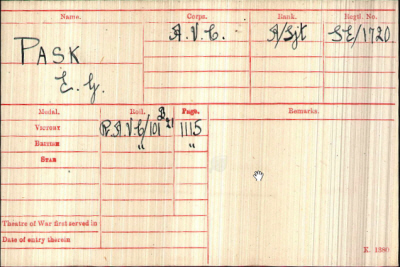 Name. Corps. Rank. Regtl. No.
PASK A.V.C. A/Sjt SE/1720.
E. G.
Medal. Roll. Page. Remarks.
VICTORY R.A.V.C/101 B21 1115
BRITISH " "
STAR
Theatre of War first served in
Date of entry therein
K. 1380